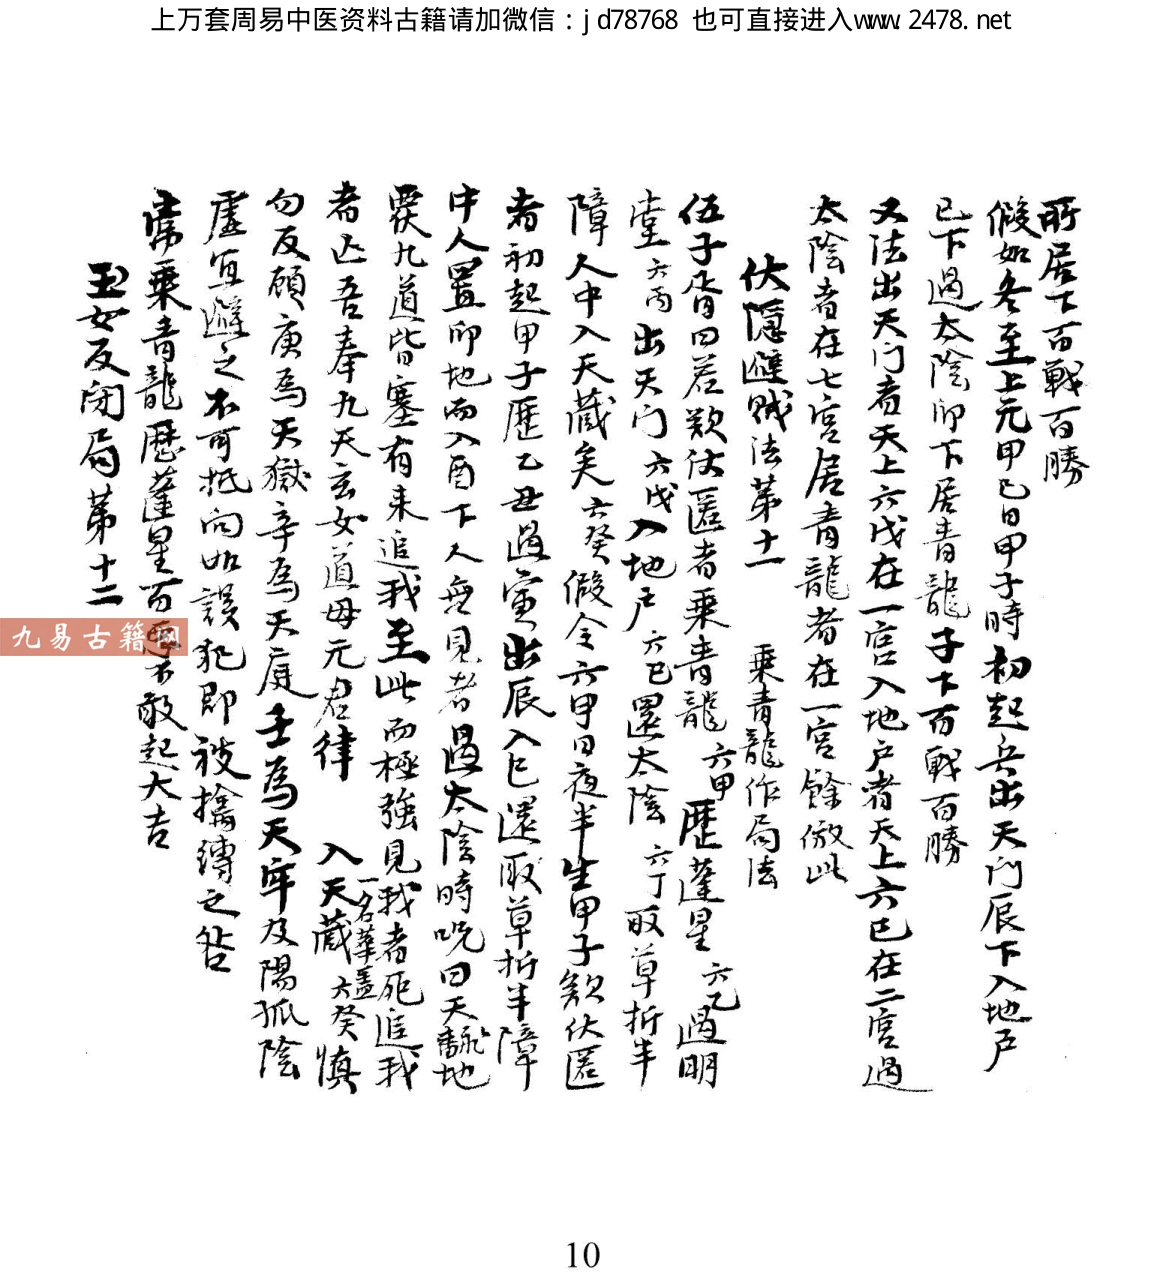 上万套周易中医资料古籍请加微信：jd78768 也可直接进入www.2478.net
所居下百戰百勝
假如冬至上元甲己日甲子時初起兵出天门辰下入地户
巳下過太陰卯下居青龍子下百戰百勝
又法出天门者天上六戊在一宫入地户者天上六己在二宫過
太陰者在七宫居青龍者在一宫餘倣此
伏隱避賊法第十一 乗青龍作局法
伍子胥曰若欲伏匿者乗青龍 六甲 歷蓬星 六乙 過明
堂 六丙 出天门 六戊 入地户 六己 還太陰 六丁 取草折半
障人中入天藏矣 六癸 假令六甲日夜半生甲子欲伏匿
者初起甲子歷乙丑過寅出辰入巳還取草折半障
中人置卯地而入酉下人無見者過太陰時呪曰天翻地
覆九道皆塞有来追我至此而極強見我者死追我
者亡吾奉九天玄女道母元君律 入天藏 一名華盖 六癸 慎
勿反顧庚為天獄辛為天庭壬為天牢及陽孤陰
虚宜避之不可抵向如誤犯即被擒縛之咎
常乗青龍歷蓬星百惡不敢起大吉
玉女反闭局第十二
九易古籍网
10